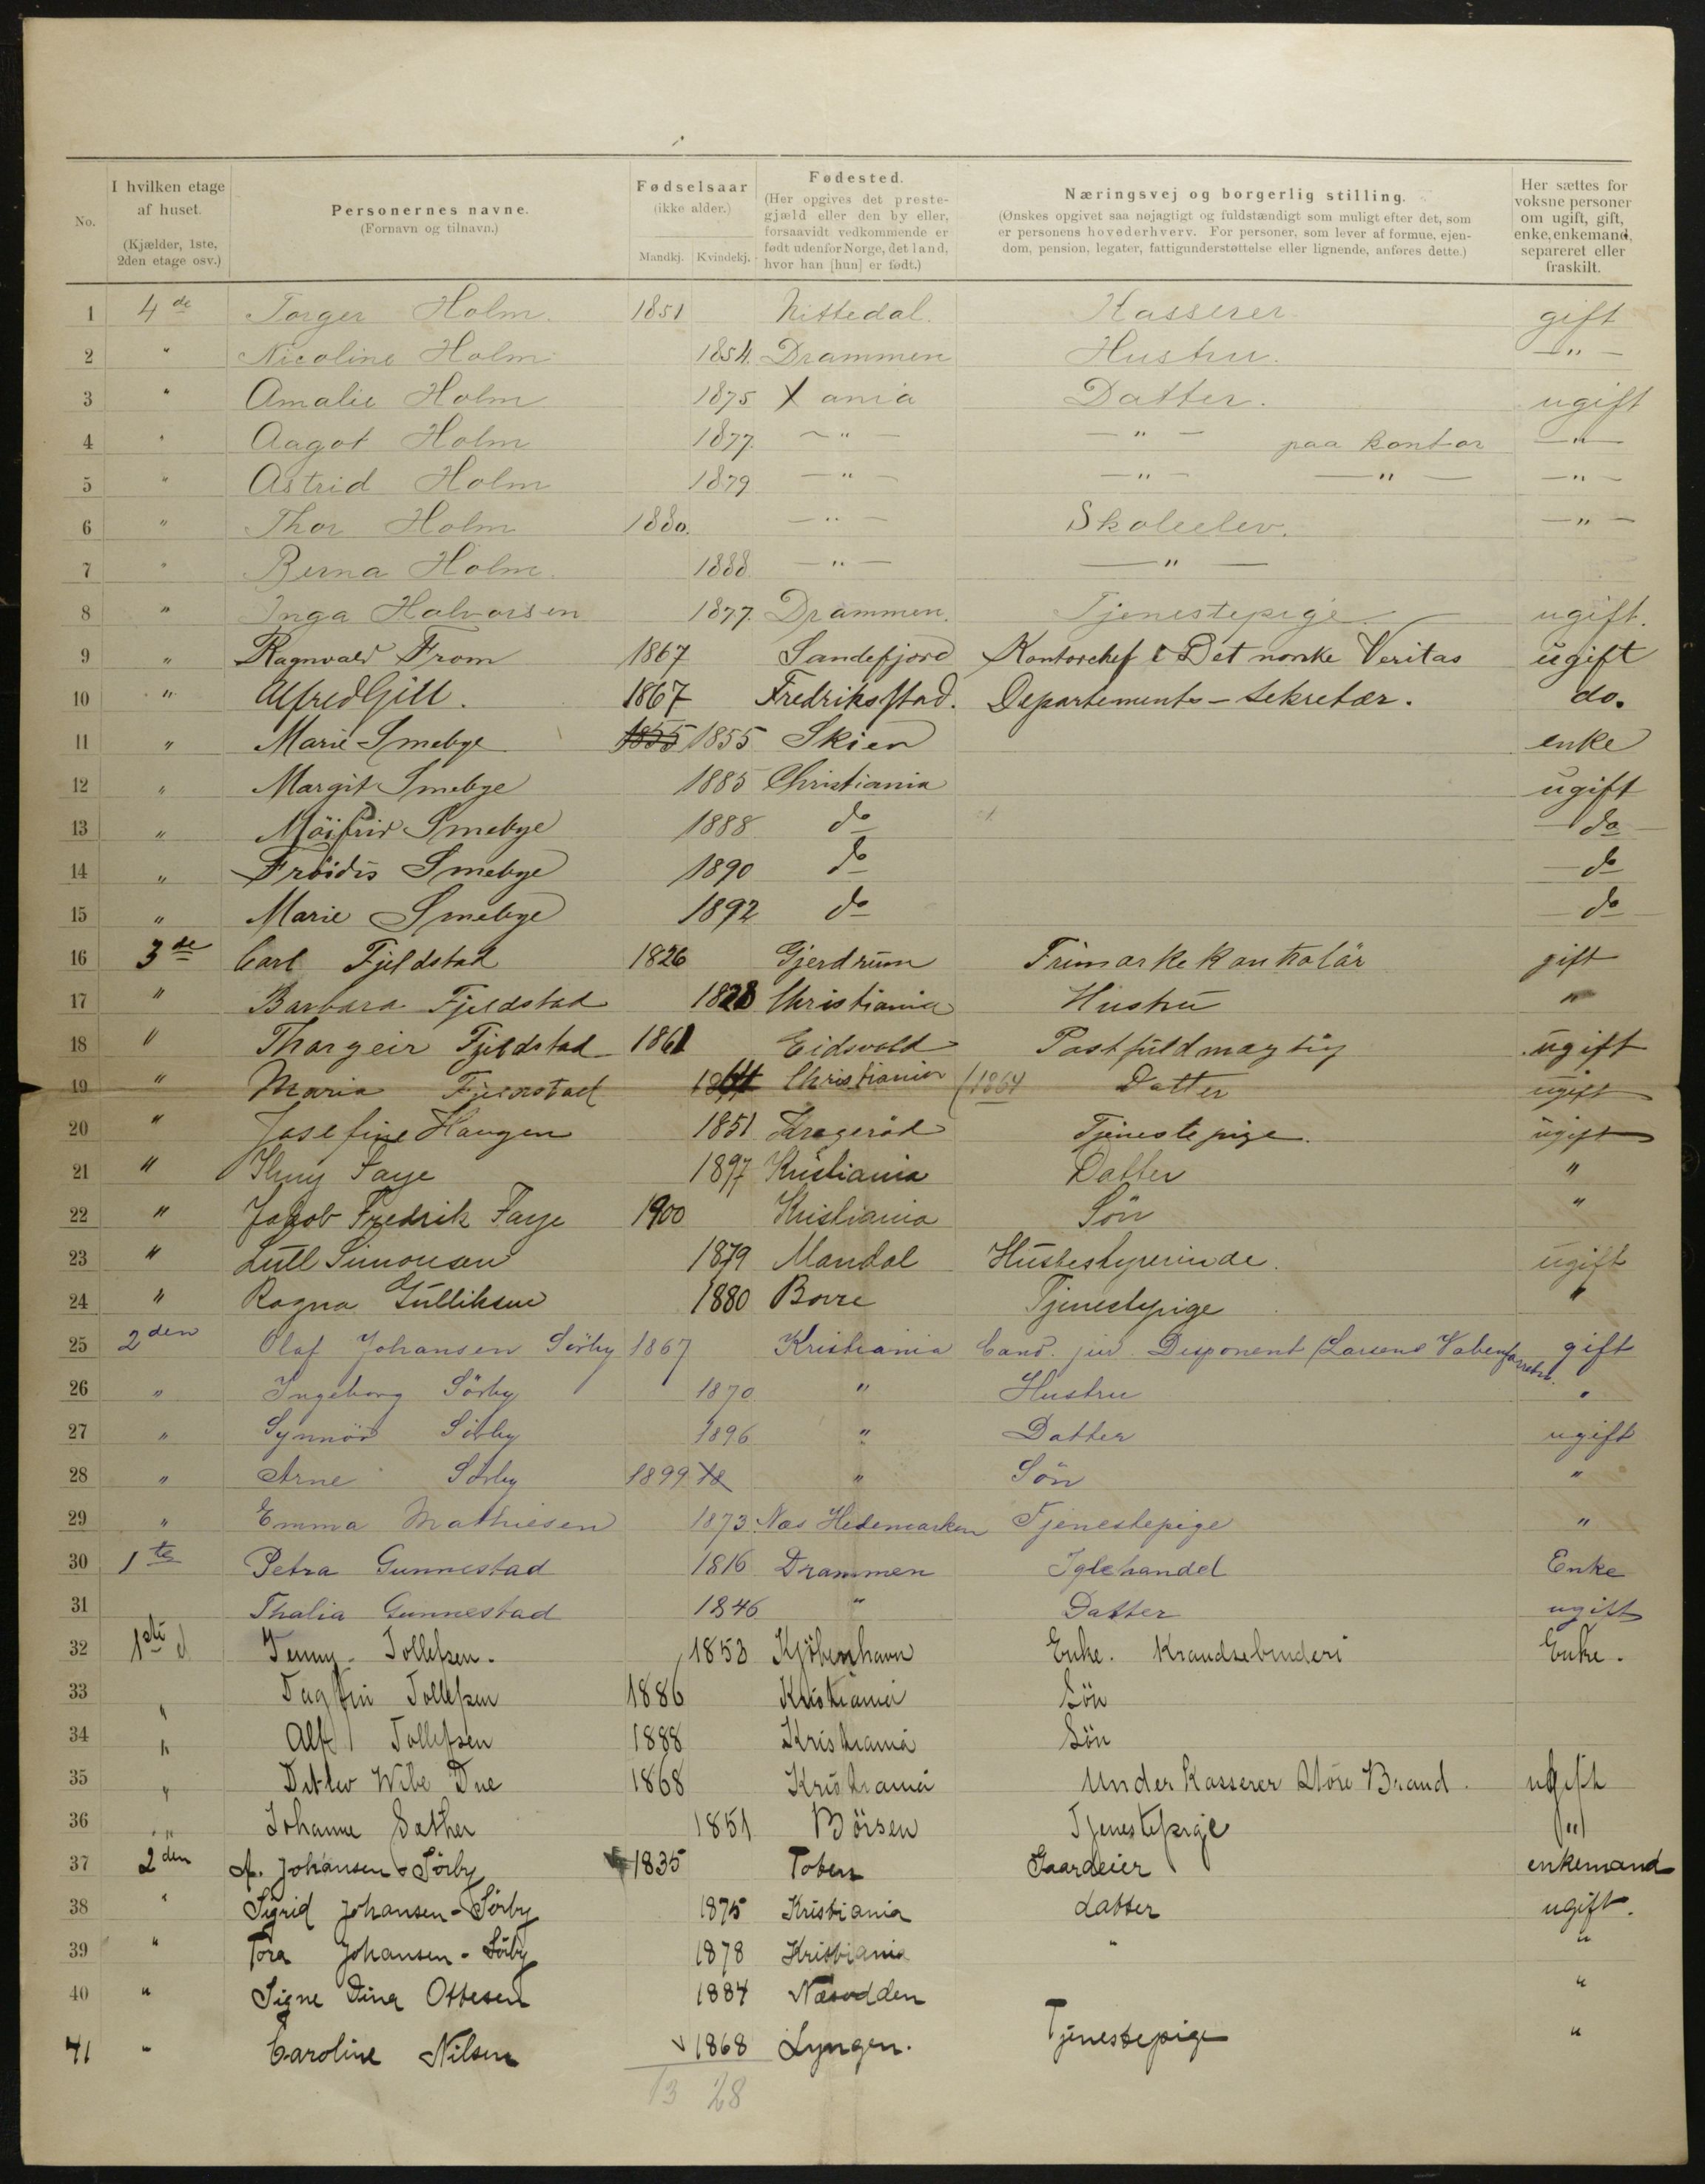 No.
I hvilken etage af huset. (Kjælder, 1ste, 2den etage osv.)
Personernes navne. (Fornavn og tilnavn.)
Fødselsaar (ikke alder.) Mandkj. Kvindekj.
Fødested. (Her opgives det prestegjæld eller den by eller, forsaavidt vedkommende er født udenfor Norge, det land, hvor han [hun] er født.)
Næringsvej og borgerlig stilling. (Ønskes opgivet saa nøjagtigt og fuldstændigt som muligt efter det, som er personens hovederhverv. For personer, som lever af formue, ejendom, pension, legater, fattigunderstøttelse eller lignende, anføres dette.)
Her sættes for voksne personer om ugift, gift, enke, enkemand, separeret eller fraskilt.
1 4de Torger Holm. 1851 Nittedal. Kasserer gift
2 " Nicoline Holm 1854. Drammen Hustru. —"—
3 " Amalie Holm 1875 Xania Datter. ugift
4 " Aagot Holm 1877. —"— —"— paa kontor —"—
5 " Astrid Holm 1879 —"— —"— —"— —"—
6 " Thor Holm 1880. —"— Skoleelev. —"—
7 " Berna Holm. 1888 —"— —"—
8 " Inga Halvorsen 1877. Drammen. Tjenestepige ugift.
9 " Ragnvald From 1867 Sandefjord Kontorchef i Det norske Veritas ugift
10 " Alfred Gill. 1867 Fredriksstad. Departements-sekretær. do.
11 " Marie Smebye 1855 1855 Skien enke
12 " Margit Smebye 1885 Christiania ugift
13 " Möifrid Smebye 1888 do do
14 " Fröidis Smebye 1890 do do
15 " Marie Smebye 1892 do do
16 3de Carl Fjeldstad 1826 Gjerdrum Frimærkekontrolär gift
17 " Barbara Fjeldstad 1828 Christiania Hustru "
18 " Thorgeir Fjeldstad 1861 Eidsvold Postfuldmægtig ugift
19 " Maria Fjeldstad 1864 Christiania (1864 Datter ugift
20 " Josefine Haugen 1851 Kragerød Tjenestepige. ugift
21 " Faye 1897 Kristiania Datter "
22 " Jakob Fredrik Faye 1900 Kristiania Sön "
23 " Lull Simonsen 1879 Mandal Husbestyrerinde. ugift
24 " Ragna Gulliksen 1880 Borre Tjenestepige "
25 2den Olaf Johansen Sörby 1867 Kristiania Cand. jur. Disponent (Larsens Vabenforretn. gift
26 " Ingeborg Sörby 1870 " Hustru "
27 " Synnöv Sörby 1896 " Datter ugift
28 " Arne Sörby 1899 18 " Sön "
29 " Emma Mathiesen 1873 Næs Hedemarken Tjenestepige "
30 1te Petra Gunnestad 1816 Drammen Iglehandel Enke
31 Thalia Gunnestad 1846 " Datter ugift
32 1ste Jenny Tollefsen. 1853 Kjöbenhavn Enke. Krandsebinderi Enke.
33 " Dagfin Tollefsen 1886 Kristiania Sön
34 " Alf Tollefsen 1888 Kristiania Sön
35 " Ditlev Wibe Due 1868 Kristiania Underkasserer Store Brand. ugift
36 " Johanne Sæther 1851 Börsen Tjenestepige "
37 2den A. Johansen-Sörby 1835 Toten Gaardeier enkemand
38 " Sigrid Johansen-Sörby 1875 Kristiania datter ugift.
39 " Tora Johansen-Sörby 1878 Kristiania " "
40 " Signe Dina Ottesen 1884 Næsodden "
41 " Caroline Nilsen 1868 Lyngen. Tjenestepige "
13 28